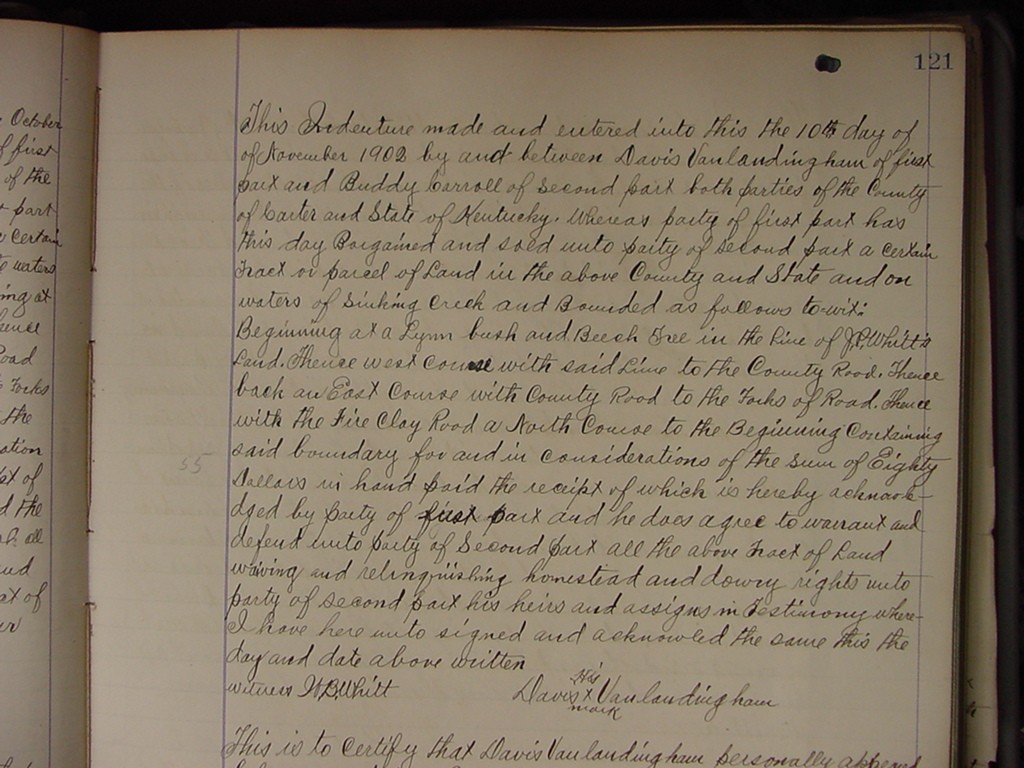 121
October
first
of the
part
certain
waters
ing at
Road
Forks
the
ation
of
d the
all
of
This Indenture made and entered into this the 10th day of
of November 1902 by and between Davis Vanlandingham of first
part and Buddy Carroll of Second part both parties of the County
of Carter and State of Kentucky. Whereas party of first part has
this day Bargained and sold unto party of second part a certain
Tract or parcel of Land in the above County and State and on
waters of Sinking Creek and Bounded as follows to-wit:
Beginning at a Lynn bush and Beech Tree in the Line of J.P. Whitt's
Land. Thence west course with said Line to the County Road. Thence
back an East Course with County Road to the Forks of Road. Thence
with the Fire Clay Road a North Course to the Beginning Containing
said boundary for and in considerations of the sum of Eighty
55
Dollars in hand paid the receipt of which is hereby acknowl-
dged by party of first part and he does agree to warrant and
defend unto party of Second part all the above Tract of Land
waiving and relinquishing homestead and dowry rights unto
party of second part his heirs and assigns in Testimony where-
I have here unto signed and acknowled the same this the
day and date above written
witness W.B. Whitt Davis his X mark Vanlandingham
This is to Certify that Davis Vanlandingham personally appeared